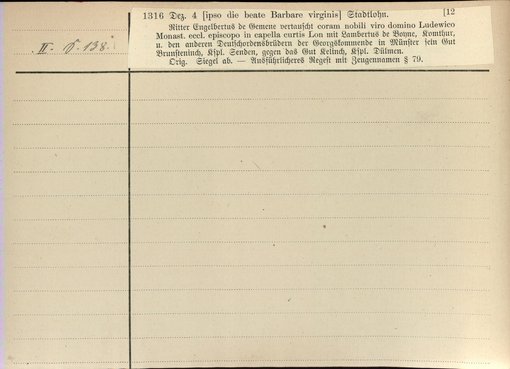 1316 Dez. 4 [ipso die beate Barbare virginis] Stadtlohn. [12
Ritter Engelbertus de Gemene vertauscht coram nobili viro domino Ludewico
Monast. eccl. episcopo in capella curtis Lon mit Lambertus de Boyne, Komthur,
u. den anderen Deutschordensbrüdern der Georgskommende in Münster sein Gut
Brunsteninch, Kspl. Senden, gegen das Gut Kelinch, Kspl. Dülmen.
Orig. Siegel ab. — Ausführlicheres Regest mit Zeugennamen § 79.
II. 138.